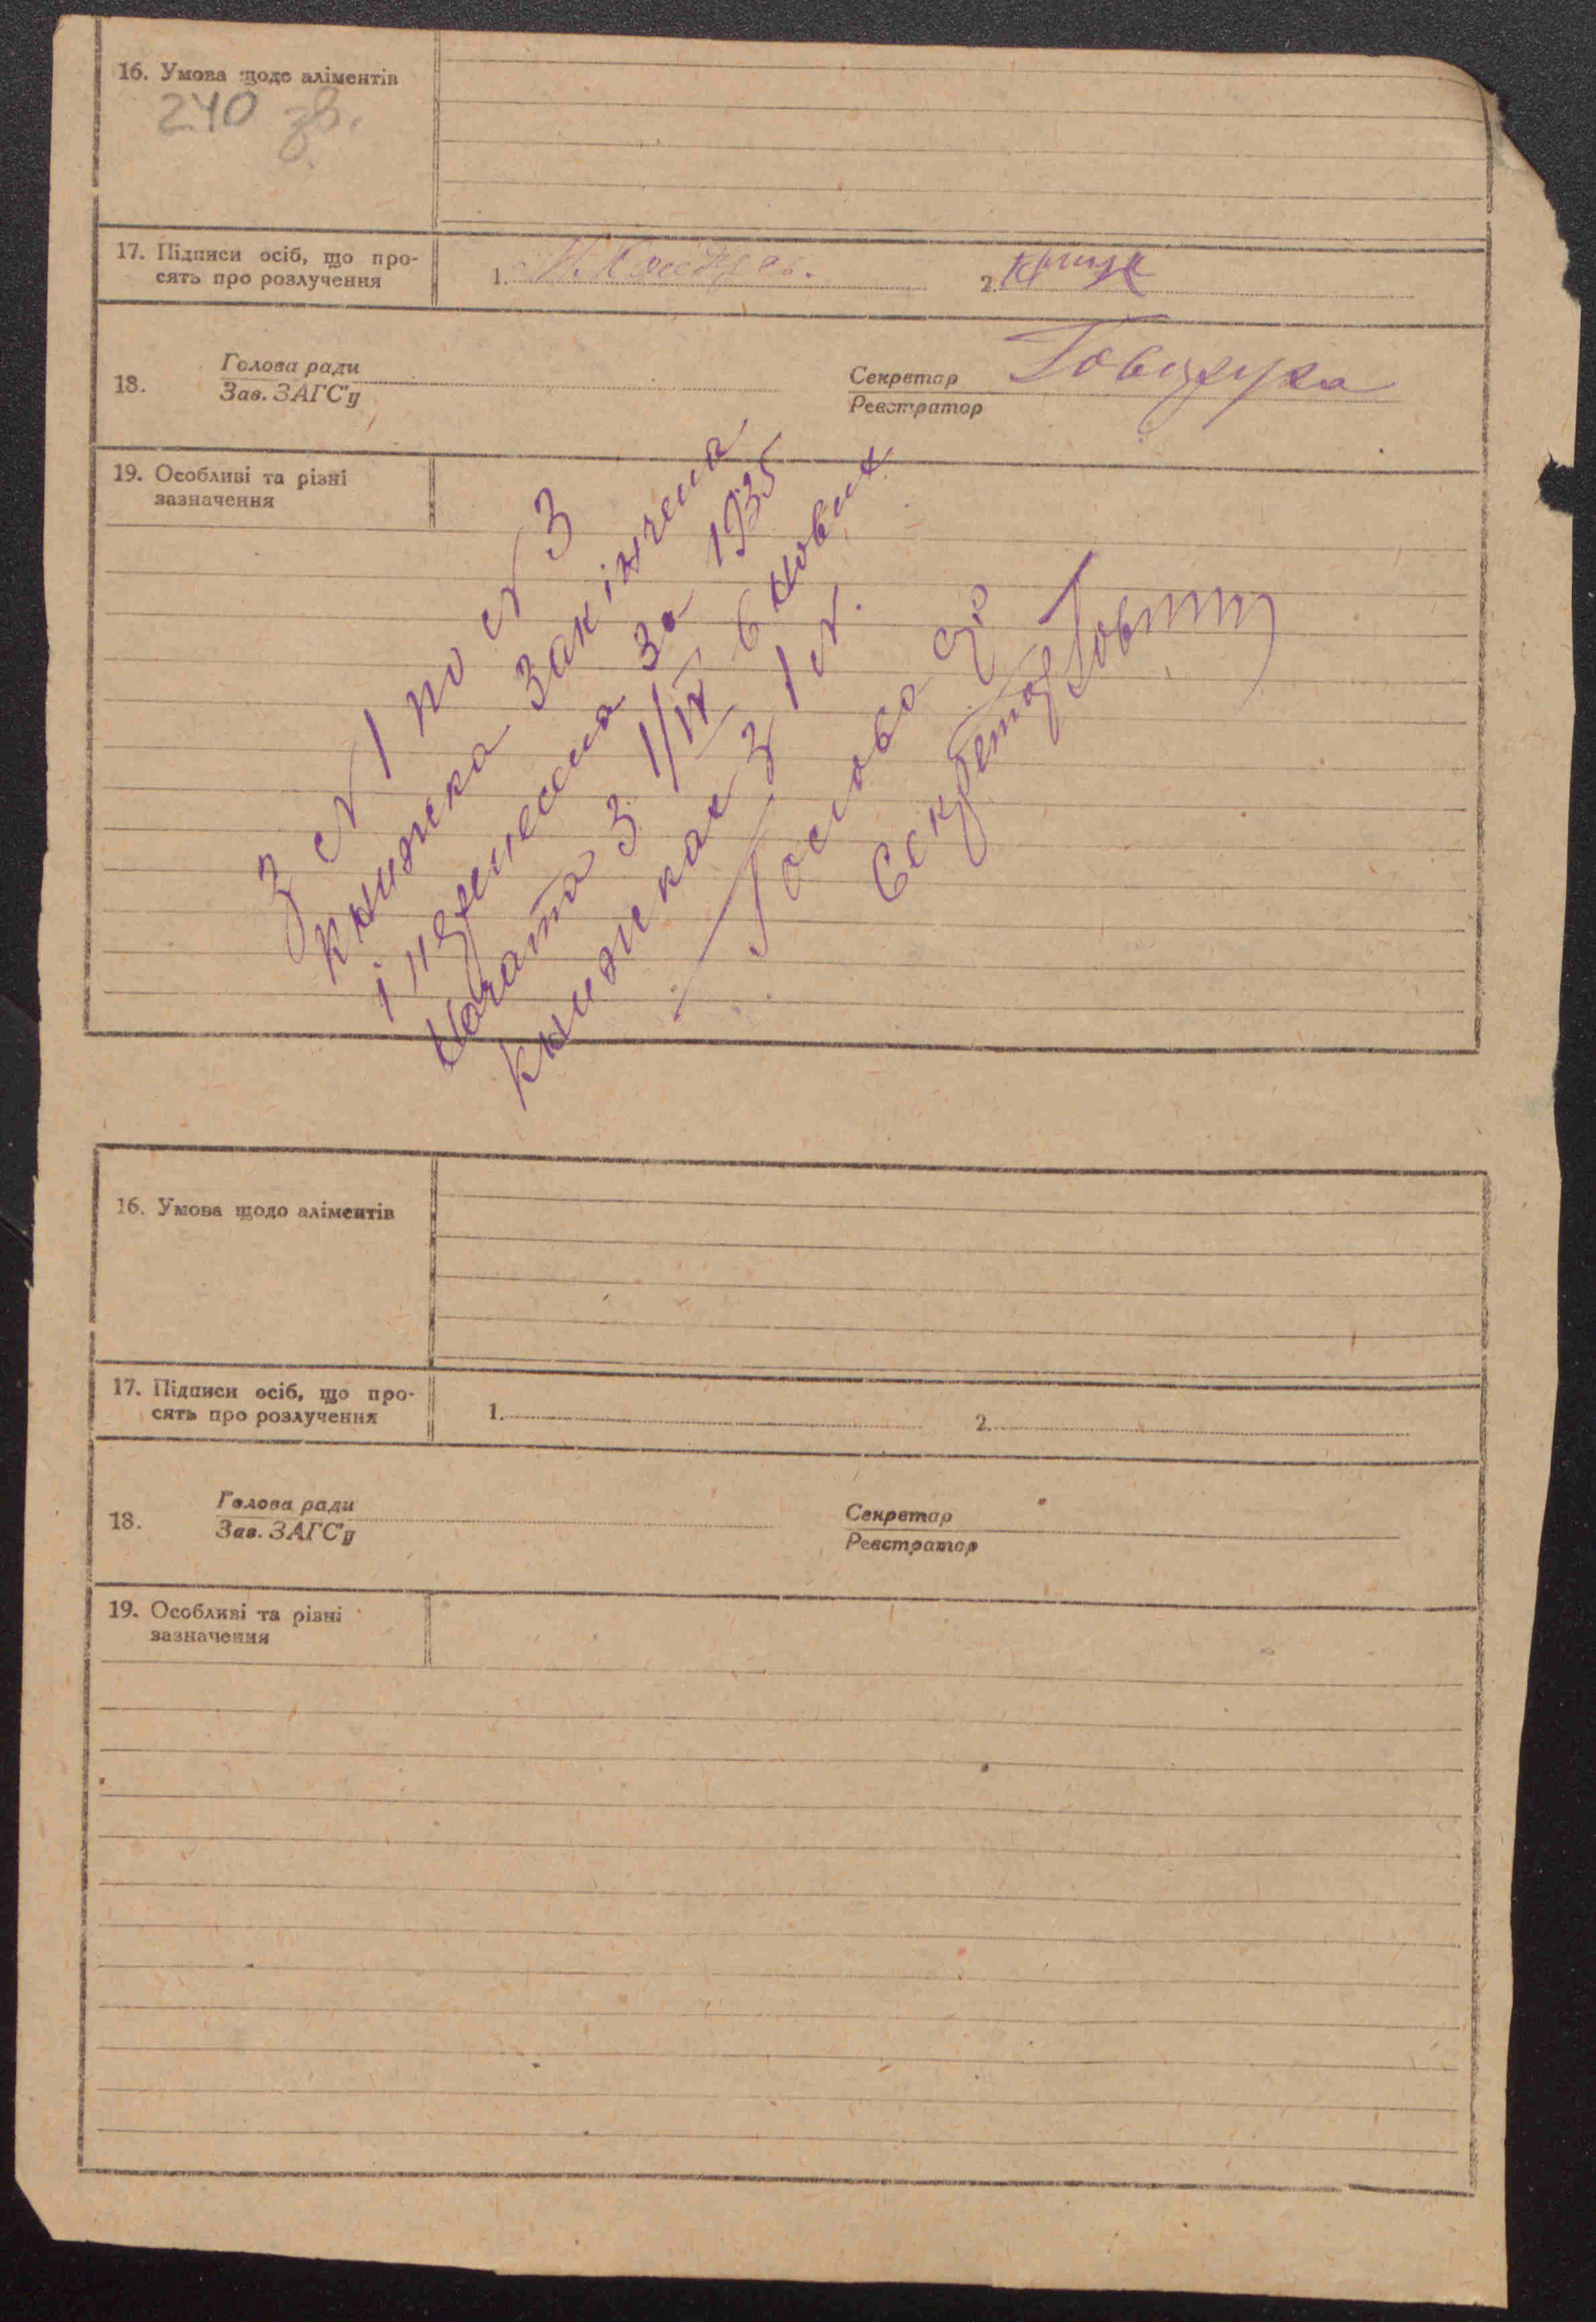 16. Умова щодо аліментів
240 зв.
17. Підписи осіб, що про-
сять про розлучення
1.
2.
18.
Голова ради
Зав. ЗАГС'у
Секретар
Реєстратор
19. Особливі та різні
зазначення
З № 1 по № 3
книжка закінчена
і за 1935
Почата з 1/IV в нових
книжках з 1 №.
Голова
Секретар
16. Умова щодо аліментів
17. Підписи осіб, що про-
сять про розлучення
1.
2.
18.
Голова ради
Зав. ЗАГС'у
Секретар
Реєстратор
19. Особливі та різні
зазначення